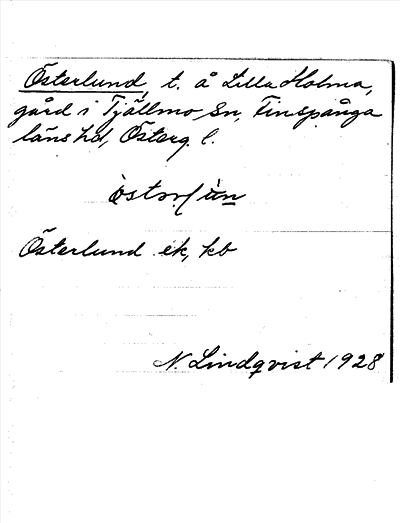 Österlund, t. å Lilla Holma,
gård i Tjällmo sn, Finspånga
läns hd, Österg. l.
Österlund ek, kb
N. Lindqvist 1928